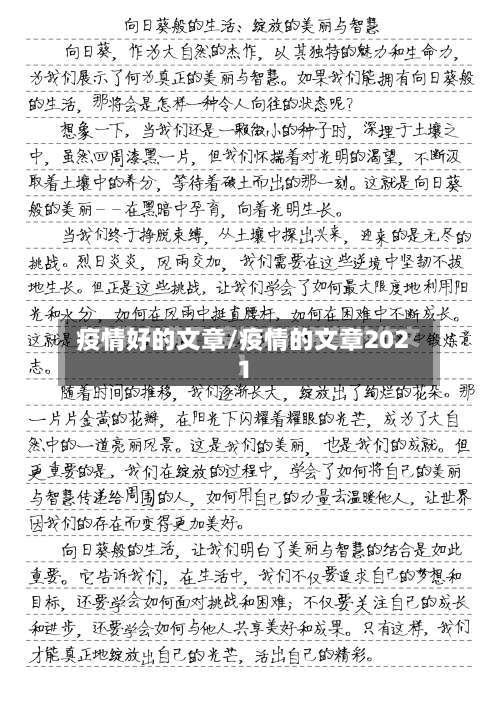 向日葵般的生活：绽放的美丽与智慧
向日葵，作为大自然的杰作，以其独特的魅力和生命力，
为我们展示了何为真正的美丽与智慧。如果我们能拥有向日葵般
的生活，那将会是怎样一种令人向往的状态呢？
想象一下，当我们还是一颗微小的种子时，深埋于土壤之
中，虽然四周漆黑一片，但我们怀揣着对光明的渴望，不断汲
取着土壤中的养分，等待着破土而出的那一刻。这就是向日葵
般的美丽--在黑暗中孕育，向着光明生长。
当我们终于挣脱束缚，从土壤中探出头来，迎来的是无尽的
挑战。烈日炎炎，风雨交加，我们需要在这些逆境中坚韧不拔
地生长。但正是这些挑战，让我们学会了如何最大限度地利用阳
光和水分，如何在风雨中挺直腰杆，如何在困难中不断成长。
这就是
锻炼意
疫情好的文章/疫情的文章202
1
志。
随着时间的推移，我们逐渐长大，绽放出了绚烂的花朵。那
一片片金黄的花瓣，在阳光下闪耀着耀眼的光芒，成为了大自
然中的一道亮丽风景。这是我们的美丽，也是我们的成就。但
更重要的是，我们在绽放的过程中，学会了如何将自己的美丽
与智慧传递给周围的人，如何用自己的力量去温暖他人，让世界
因我们的存在而变得更加美好。
向日葵般的生活，让我们明白了美丽与智慧的结合是如此
重要。它告诉我们，在生活中，我们不仅要追求自己的梦想和
目标，还要学会如何面对挑战和困难；不仅要关注自己的成长
和进步，还要学会如何与他人共享美好和成果。只有这样，我们
才能真正地绽放出自己的光芒，活出自己的精彩。